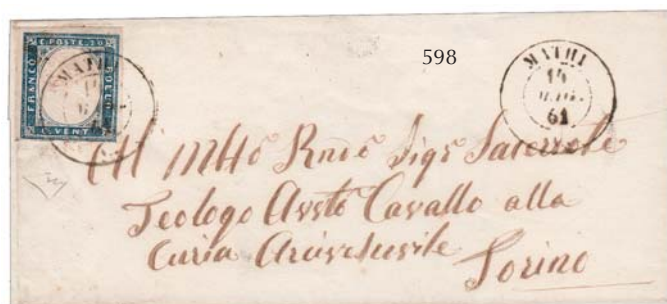 C. POSTE. 20
FRANCO
BOLLO
C. VENTI
MATHI
598
MATHI
14
61
All' Mtto Rndo Sigr Sacerdote
Teologo Avvto Cavallo alla
Curia Arcivescovile
Torino